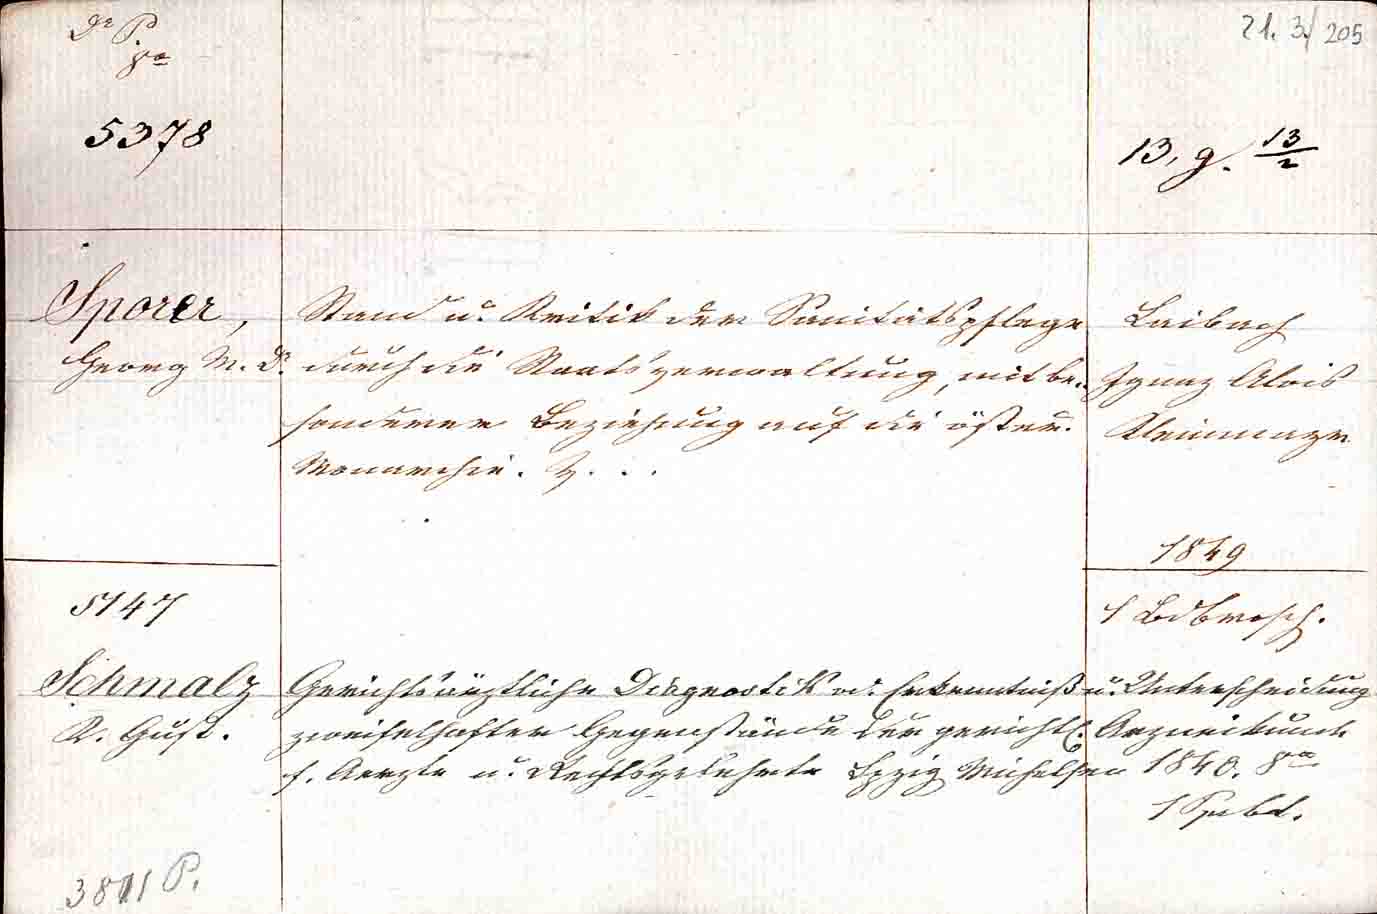 21. 3./205
5378
13, g. 13/2
Sporer,
Georg M. D.
Stand u. Kritik der Sanitätspflege
durch die Staatsverwaltung, mit be-
sonderer Beziehung auf die österr.
Monarchie. . . .
Laibach
Ignaz Alois
Kleinmayr
1849
1 Bd brosch.
5147
Schmalz
K. Gust.
Gerichtsärztliche Diagnostik od. Erkenntniß u. Unterscheidung
zweifelhafter Gegenstände der gerichtl. Arzneikunde
f. Aerzte u. Rechtsgelehrte Lpzig Michelsen 1840. 8°
1 Ppbd.
3811 P.